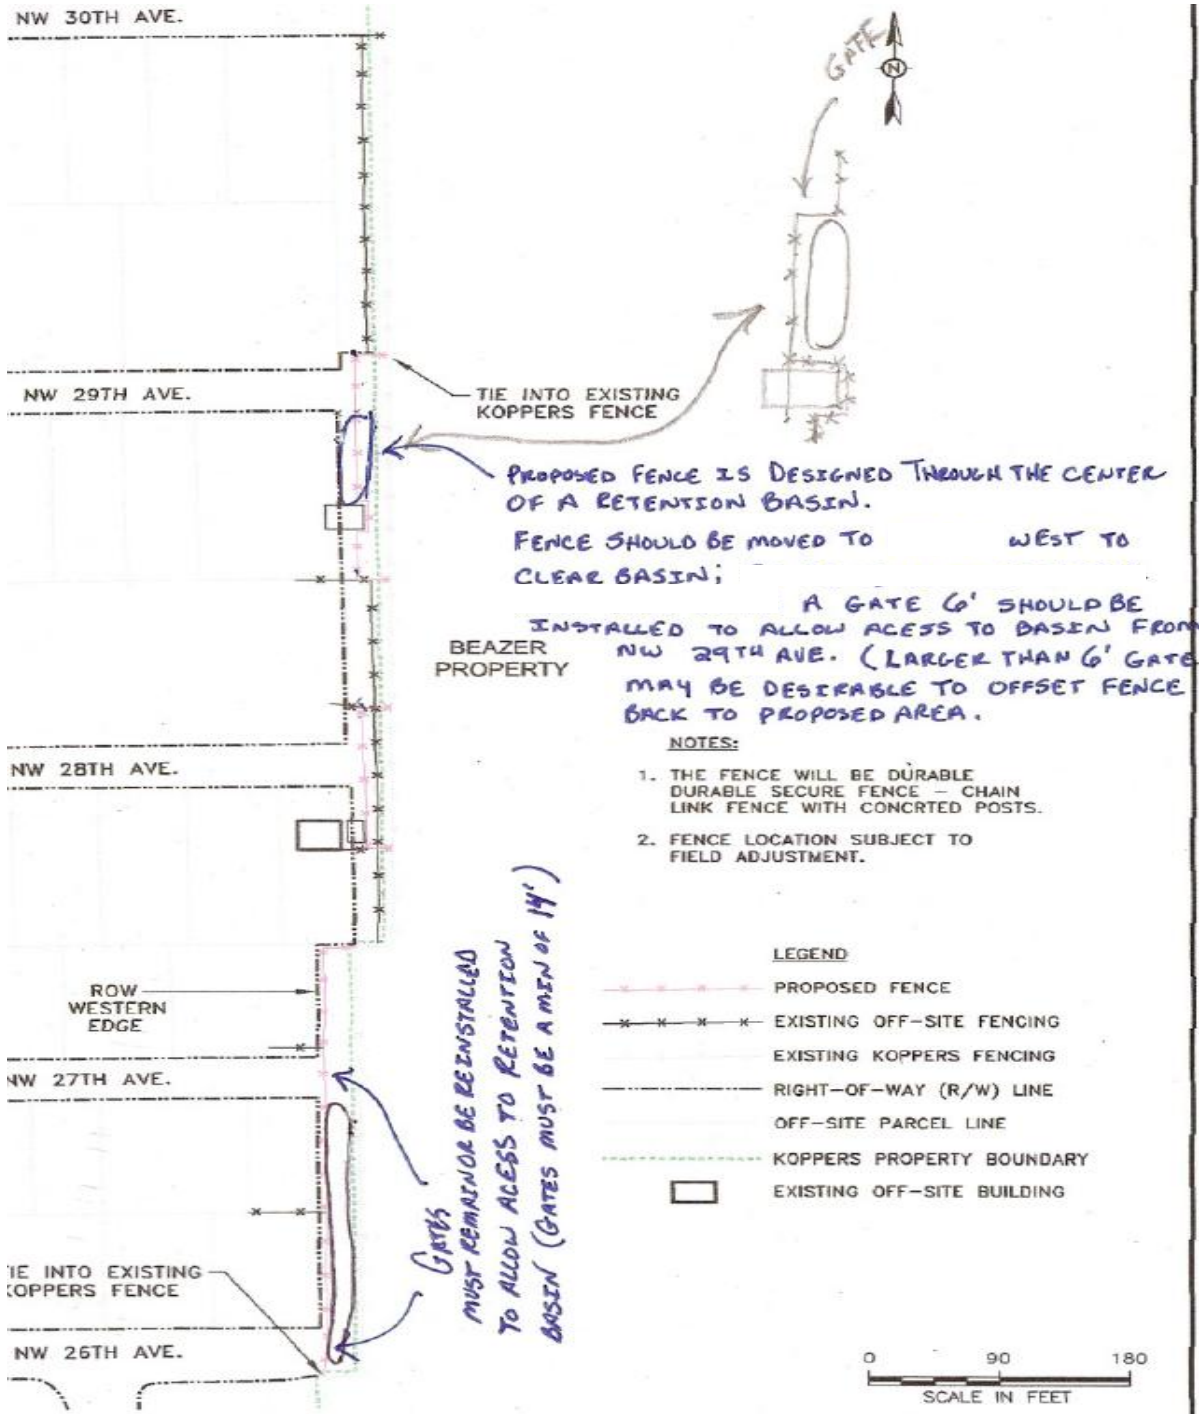 NW 30TH AVE.
GATE
N
NW 29TH AVE.
TIE INTO EXISTING
KOPPERS FENCE
PROPOSED FENCE IS DESIGNED THROUGH THE CENTER
OF A RETENSION BASIN.
FENCE SHOULD BE MOVED TO WEST TO
CLEAR BASIN;
A GATE 6' SHOULD BE
INSTALLED TO ALLOW ACESS TO BASIN FROM
NW 29TH AVE. (LARGER THAN 6' GATE
MAY BE DESIRABLE TO OFFSET FENCE
BACK TO PROPOSED AREA.
BEAZER
PROPERTY
NOTES:
1. THE FENCE WILL BE DURABLE
DURABLE SECURE FENCE – CHAIN
LINK FENCE WITH CONCRTED POSTS.
2. FENCE LOCATION SUBJECT TO
FIELD ADJUSTMENT.
NW 28TH AVE.
GATES
MUST REMAIN OR BE REINSTALLED
TO ALLOW ACESS TO RETENTION
BASIN (GATES MUST BE A MIN OF 14')
ROW
WESTERN
EDGE
NW 27TH AVE.
LEGEND
PROPOSED FENCE
EXISTING OFF-SITE FENCING
EXISTING KOPPERS FENCING
RIGHT-OF-WAY (R/W) LINE
OFF-SITE PARCEL LINE
KOPPERS PROPERTY BOUNDARY
EXISTING OFF-SITE BUILDING
IE INTO EXISTING
KOPPERS FENCE
NW 26TH AVE.
0 90 180
SCALE IN FEET